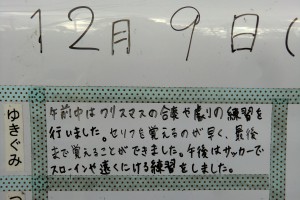 12月 9日(
ゆきぐみ
午前中はクリスマスの合奏や劇りの練習を
行いました。セリフを覚えるのが早く、最後
まで覚えることができました。午後はサッカーで
スローインや遠くにける練習をしました。
つ